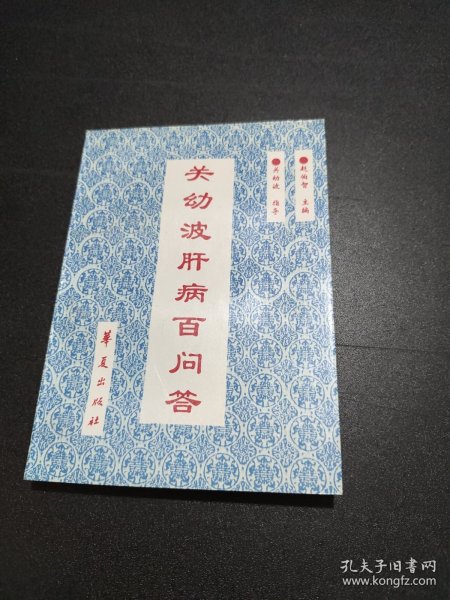 关幼波肝病百问答
赵伯智 主编
关幼波 指导
华夏出版社
孔夫子旧书网
www.kongfz.com